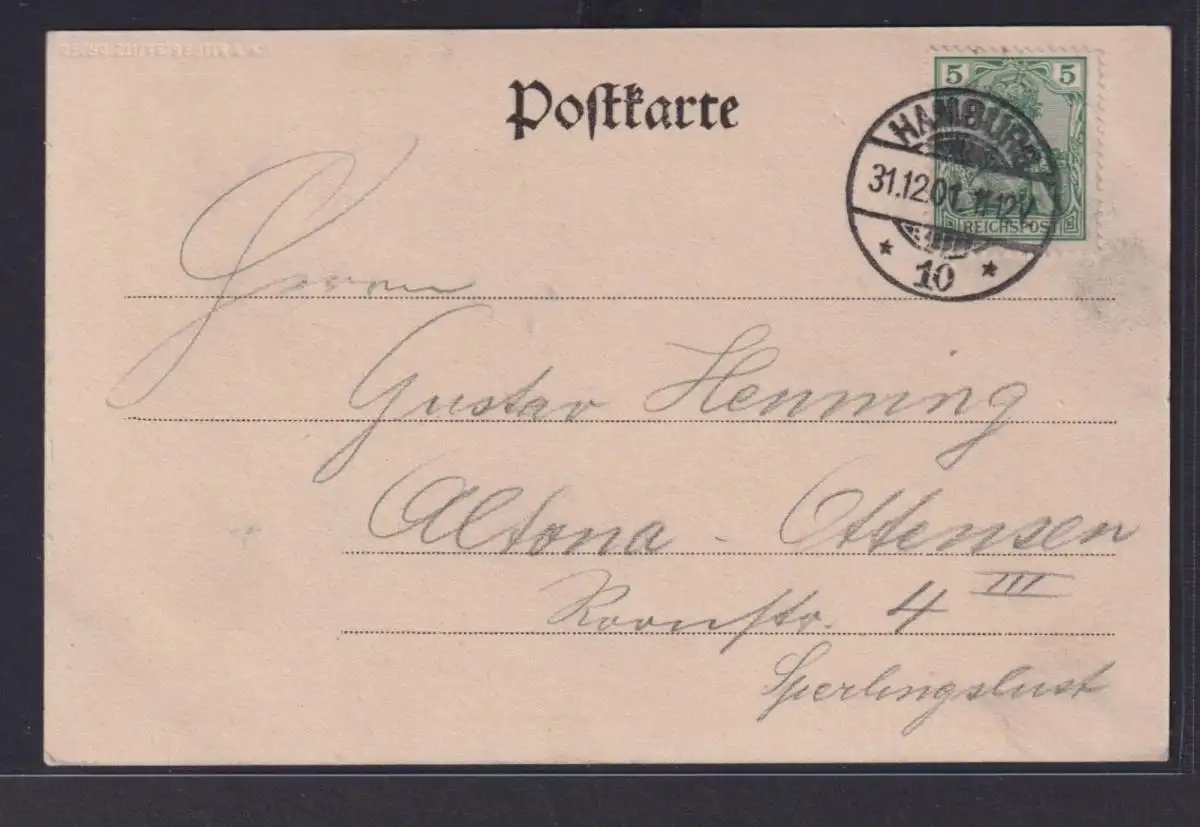 Postkarte
5 5
REICHSPOST
HAMBURG
31.12.01. 11-12V
* 10 *
Herrn
Gustav Henning
Altona - Ottensen
Roonstr. 4 III
Sperlingslust